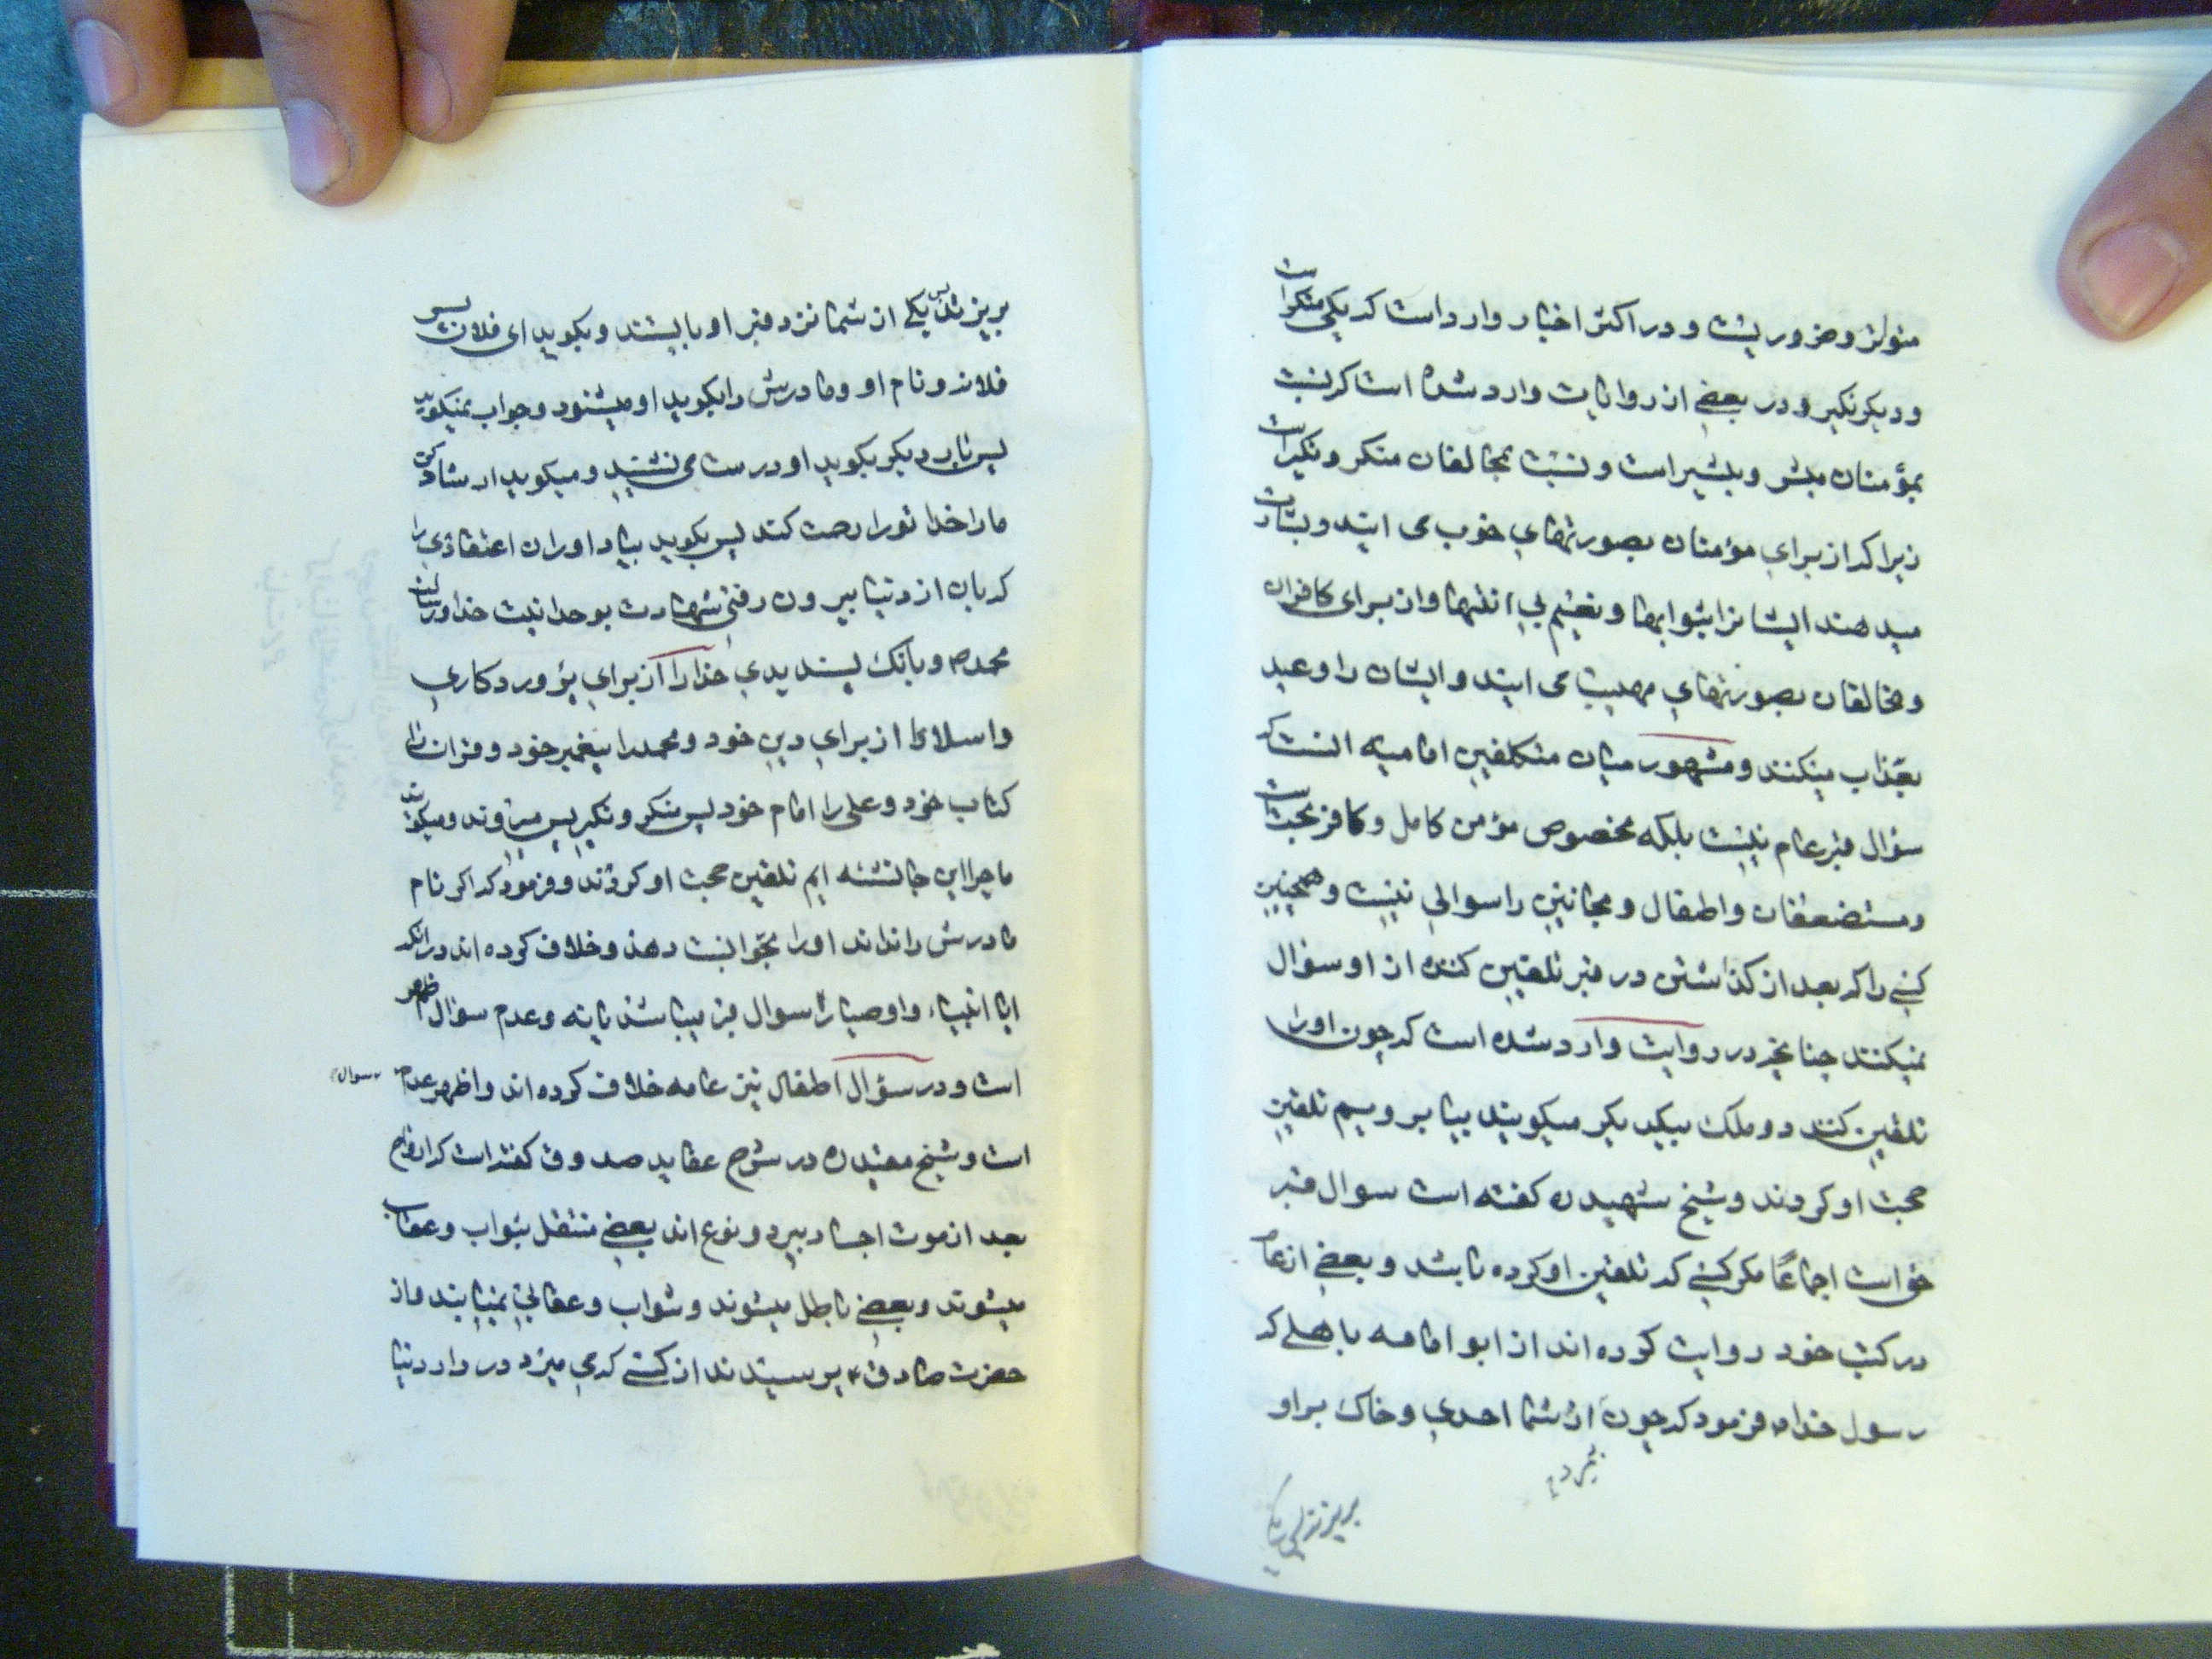 متواتر و ضروریست و در اکثر اخبار وارد است که یکی منکر است
و دیگر نکیر و در بعضی از روایات وارد شده است که نسبت
بمؤمنان مبشر و بشیر است و نسبت بمخالفان منکر و نکیر است
زیرا که از برای مؤمنان بصورتهای خوب می ایند و بشارت
میدهند ایشانرا بثوابها و نعیم بی انتها و از برای کافران
و مخالفان بصورتهای مهیب می ایند و ایشان را وعید
بعذاب میکنند و مشهور میان متکلفین امامیه انست که
سؤال قبر عام نیست بلکه مخصوص مؤمن کامل و کافر بحت است
و مستضعفان و اطفال و مجانین را سوالی نیست و همچنین
کسی را که بعد از کذاشتن در قبر تلقین کنند از او سؤال
نمیکنند چنانچه در روایت وارد شده است که چون او را
تلقین کنند دو ملک بیکدیکر میکویند بیا برویم تلقین
حجت او کردند و شیخ شهید ره کفته است سوال قبر
حق است اجماعًا مکر کسی که تلقین او کرده باشند و بعضی از عامه
در کتب خود روایت کرده اند از ابو امامه باهلی که
رسول خدا ص فرمود که چون از شما احدی و خاک بر او
بمیرد
بریزند پس یکی
بریزند پس یکی از شما نزد قبر او بایستد و بکوید ای فلان پسر
فلان و نام او و مادرش را بکوید او میشنود و جواب نمیکوید
پس بار دیکر بکوید او درست می نشیند و میکوید ارشاد کن
ما را خدا تو را رحمت کند پس بکوید بیاد اور ان اعتقادی را
که بان از دنیا بیرون رفتی شهادت بوحدانیت خدا و رسالت
محمد ص و بانک پسندیدی خدا را از برای پروردکاری
و اسلام را از برای دین خود و محمد را پیغمبر خود و قران را
کتاب خود و علی را امام خود پس منکر و نکیر پس میروند و میکویند
ما چرا این جا نشسته ایم تلقین حجت او کردند و فرمود که اکر نام
مادرش را نداند او را بحوا نسبت دهد و خلاف کرده اند در انکه
ایا انبیاء و اوصیا را سوال قبر میباشد یا نه و عدم سوال اظهر
است و در سؤال اطفال نیز عامه خلاف کرده اند و اظهر عدم سوال
است و شیخ مفید ره در شرح عقاید صدوق کفته است که ارواح
بعد از موت اجساد بردو نوع اند بعضی منتقل بثواب و عقاب
میشوند و بعضی باطل میشوند و ثواب و عقابی نمییابند و از
حضرت صادق ع پرسیدند از کسی که می میرد در دار دنیا